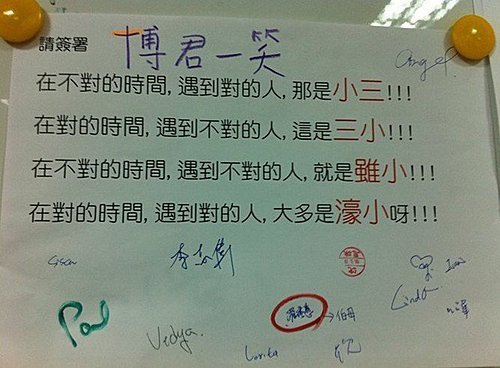 請簽署
博君一笑
Angel
在不對的時間, 遇到對的人, 那是小三!!!
在對的時間, 遇到不對的人, 這是三小!!!
在不對的時間, 遇到不對的人, 就是雖小!!!
在對的時間, 遇到對的人, 大多是濠小呀!!!
Ivan
Linda
Paul
Vidya
→伯母
Lorita